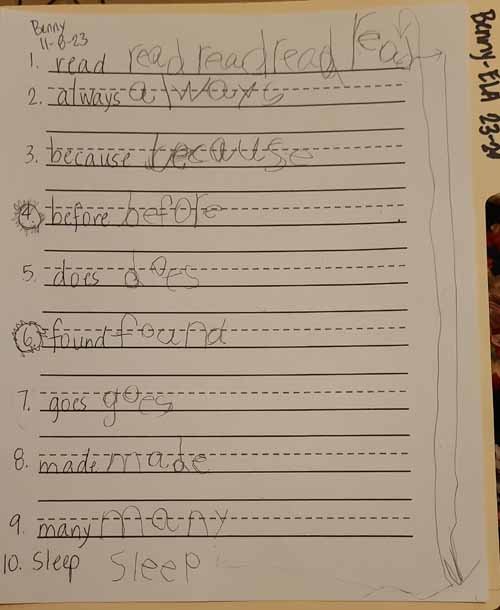 Benny
11-8-23
1. read read read read read
2. always always
3. because because
4. before before
5. does does
6. found found
7. goes goes
8. made made
9. many many
10. Sleep Sleep
Benny-ELA 23-24